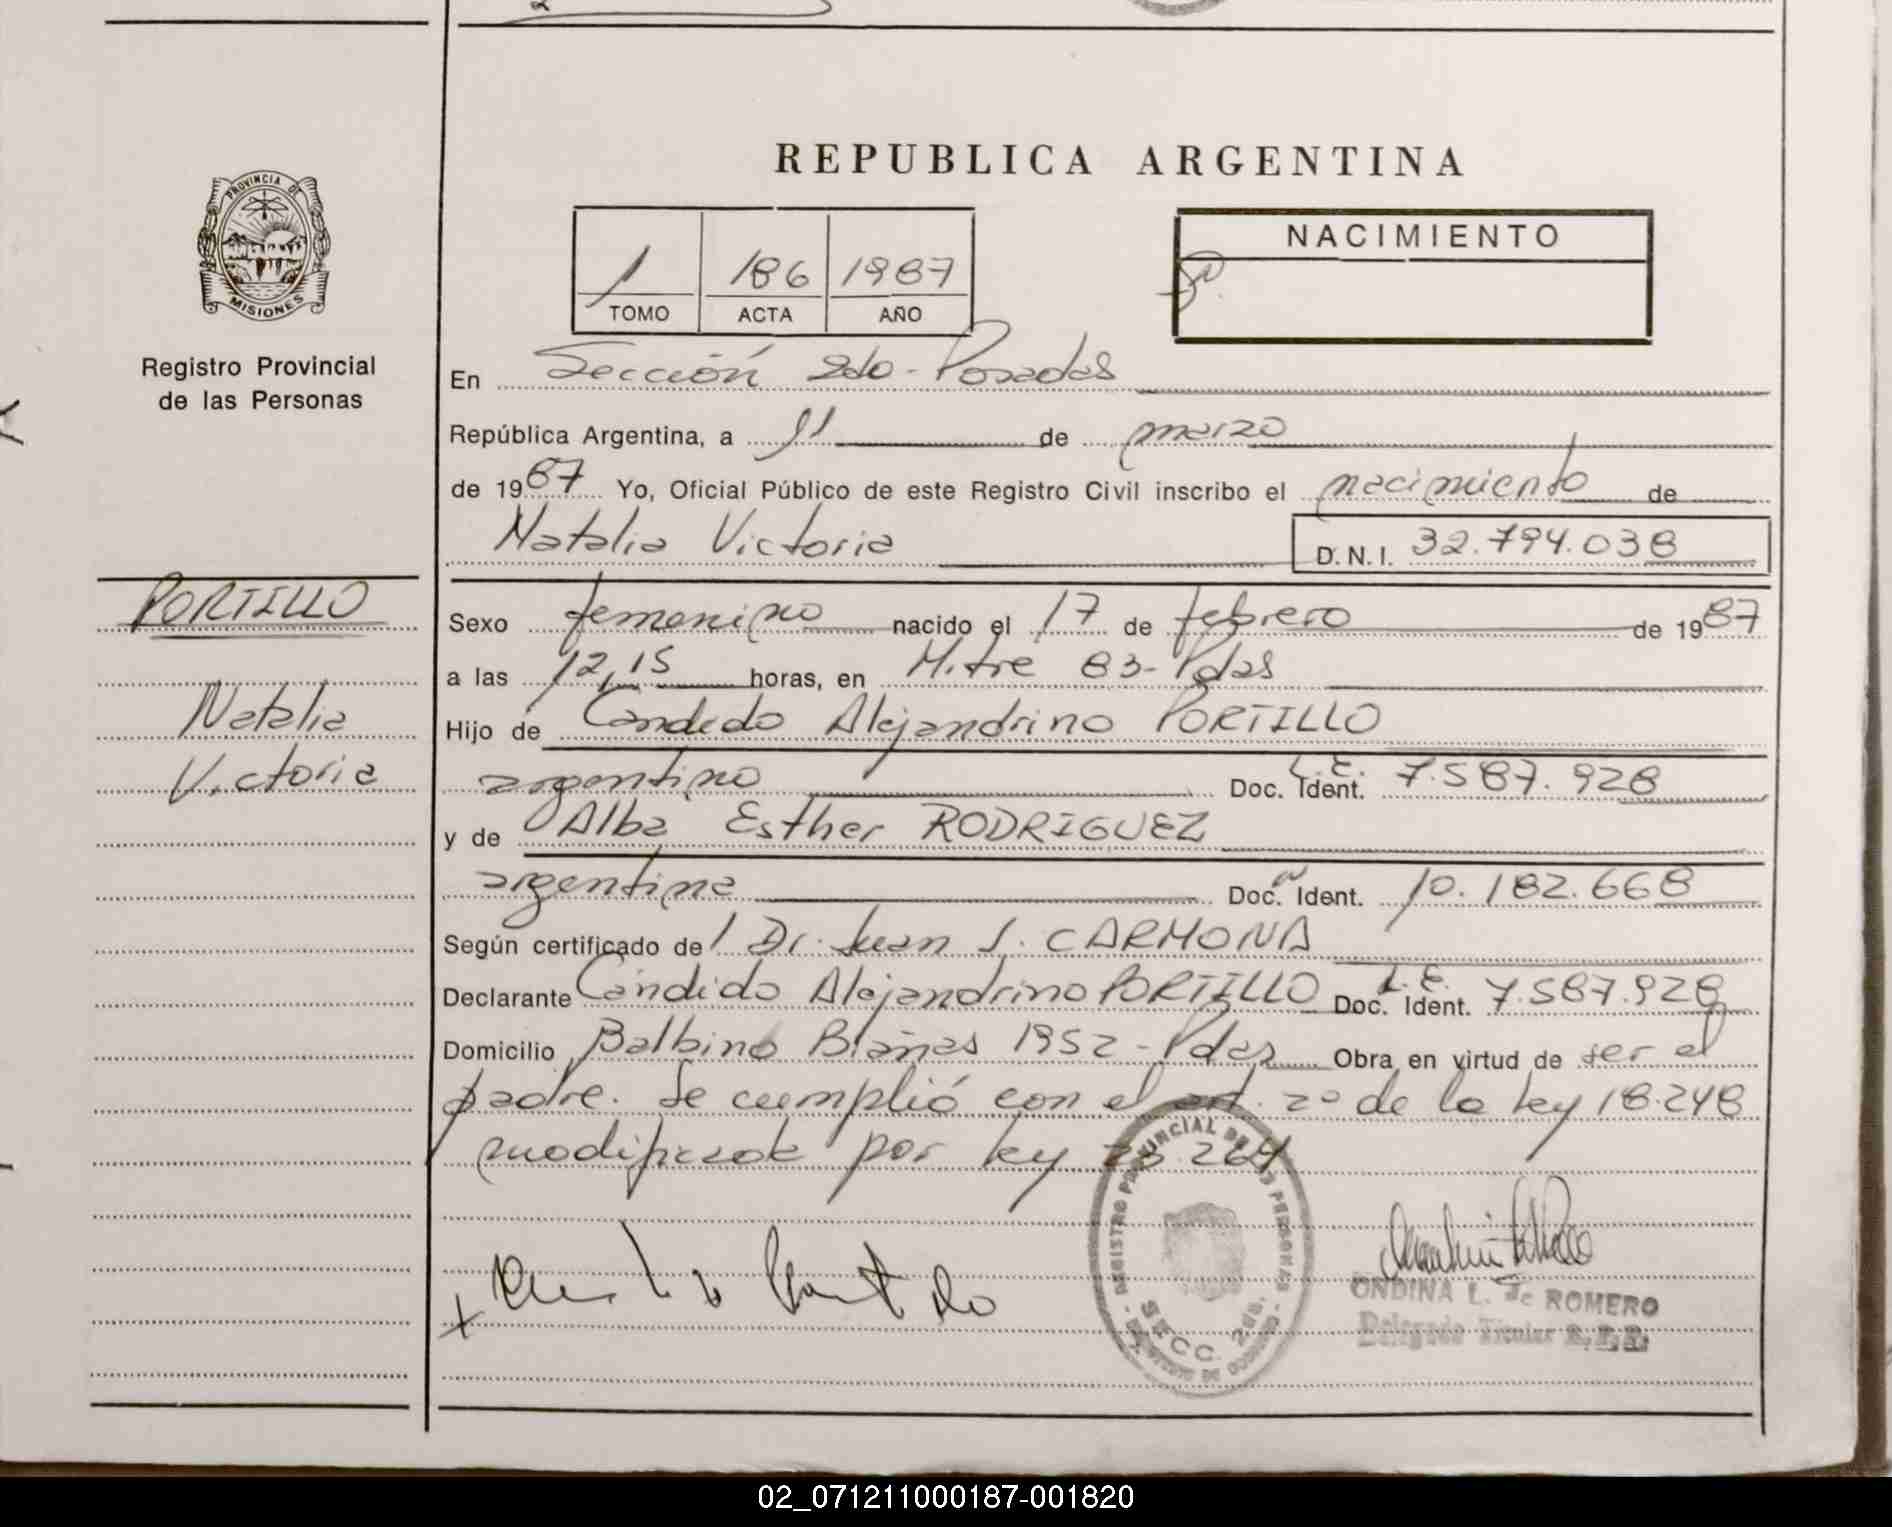 REPUBLICA ARGENTINA
PROVINCIA DE
MISIONES
Registro Provincial
de las Personas
1 186 1987
TOMO ACTA AÑO
NACIMIENTO
En Sección 2do - Posadas
República Argentina, a 11 de marzo
de 1987 Yo, Oficial Público de este Registro Civil inscribo el nacimiento de
Natalia Victoria D.N.I. 32.794.038
PORTILLO
Natalia
Victoria
Sexo femenino nacido el 17 de febrero de 1987
a las 12,15 horas, en Mitre 83 - Pdas
Hijo de Candido Alejandrino PORTILLO
argentino Doc. Ident. L.E. 7.587.928
y de Alba Esther RODRIGUEZ
argentina Doc. Ident. 10.182.668
Según certificado de Dr. Juan J. CARMONA
Declarante Candido Alejandrino PORTILLO Doc. Ident. L.E. 7.587.928
Domicilio Balbino Brañas 1952 - Pdas Obra en virtud de ser el
padre. Se cumplió con el art. 2º de la ley 18.248
modificado por ley 23.264
REGISTRO PROVINCIAL DE LAS PERSONAS
SECC. 2da.
ONDINA L. de ROMERO
Delegado Titular R.P.P.
02_071211000187-001820